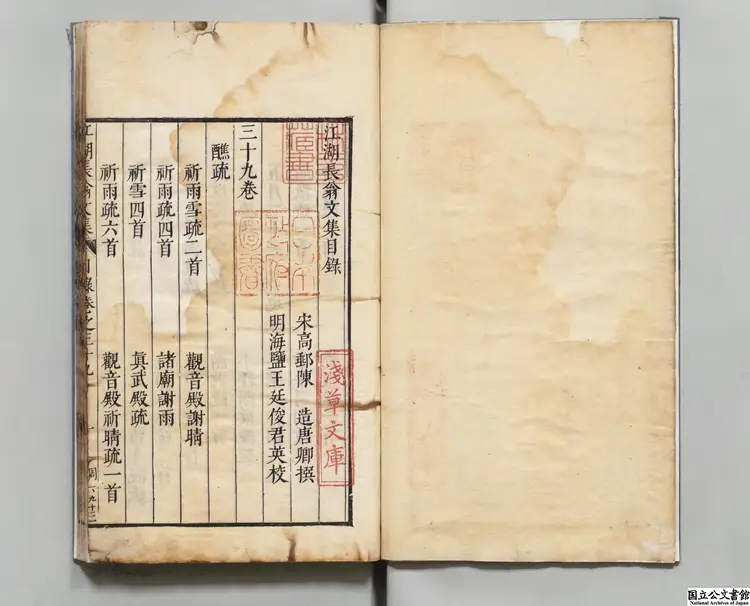 江湖長翁文集目錄
宋高郵陳 造唐卿撰
明海鹽王廷俊君英校
三十九卷
醮疏
祈雨雪疏二首 觀音殿謝晴
祈雨疏四首 諸廟謝雨
祈雪四首 眞武殿疏
祈雨疏六首 觀音殿祈晴疏一首
江湖長翁文集 目錄卷之三十九 一
淺草文庫
日本政府圖書
藏書
国立公文書館
National Archives of Japan